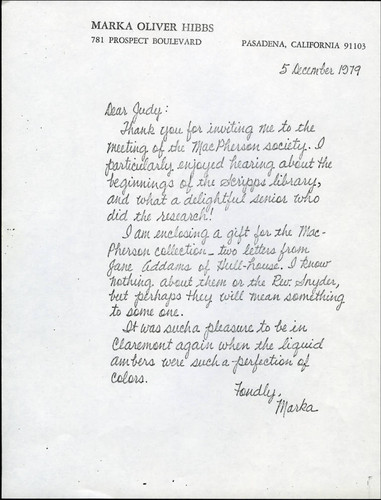 MARKA OLIVER HIBBS
781 PROSPECT BOULEVARD PASADENA, CALIFORNIA 91103
5 December 1979
Dear Judy:
Thank you for inviting me to the
meeting of the MacPherson society. I
particularly enjoyed hearing about the
beginnings of the Scripps library,
and what a delightful senior who
did the research!
I am enclosing a gift for the Mac-
Pherson collection - two letters from
Jane Addams of Hull-house. I know
nothing about them or the Rev. Snyder,
but perhaps they will mean something
to some one.
It was such a pleasure to be in
Claremont again when the liquid
ambers were such a perfection of
colors.
Fondly,
Marka